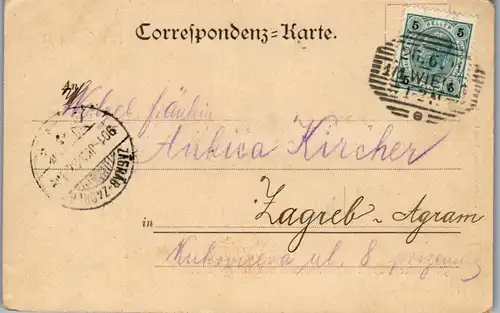 Correspondenz=Karte.
5 HELLER 5
WIEN
An
Fräulein
Ankica Kircher
ZÁGRÁB-ZAGREB
901
in Zagreb-Agram
Kukovićeva ul. 8 prizemno